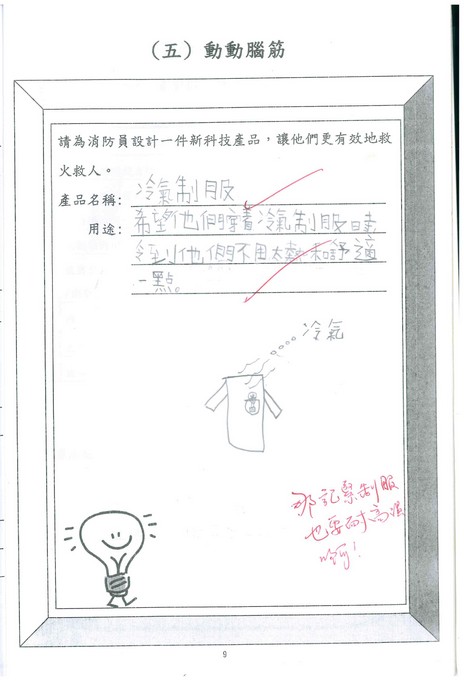 （五）動動腦筋
請為消防員設計一件新科技產品，讓他們更有效地救
火救人。
產品名稱：冷氣制服
用途：希望他們穿着冷氣制服時
令到他們不用太熱和舒適
一點。
冷氣
那記緊制服
也要耐高溫
啊！
9